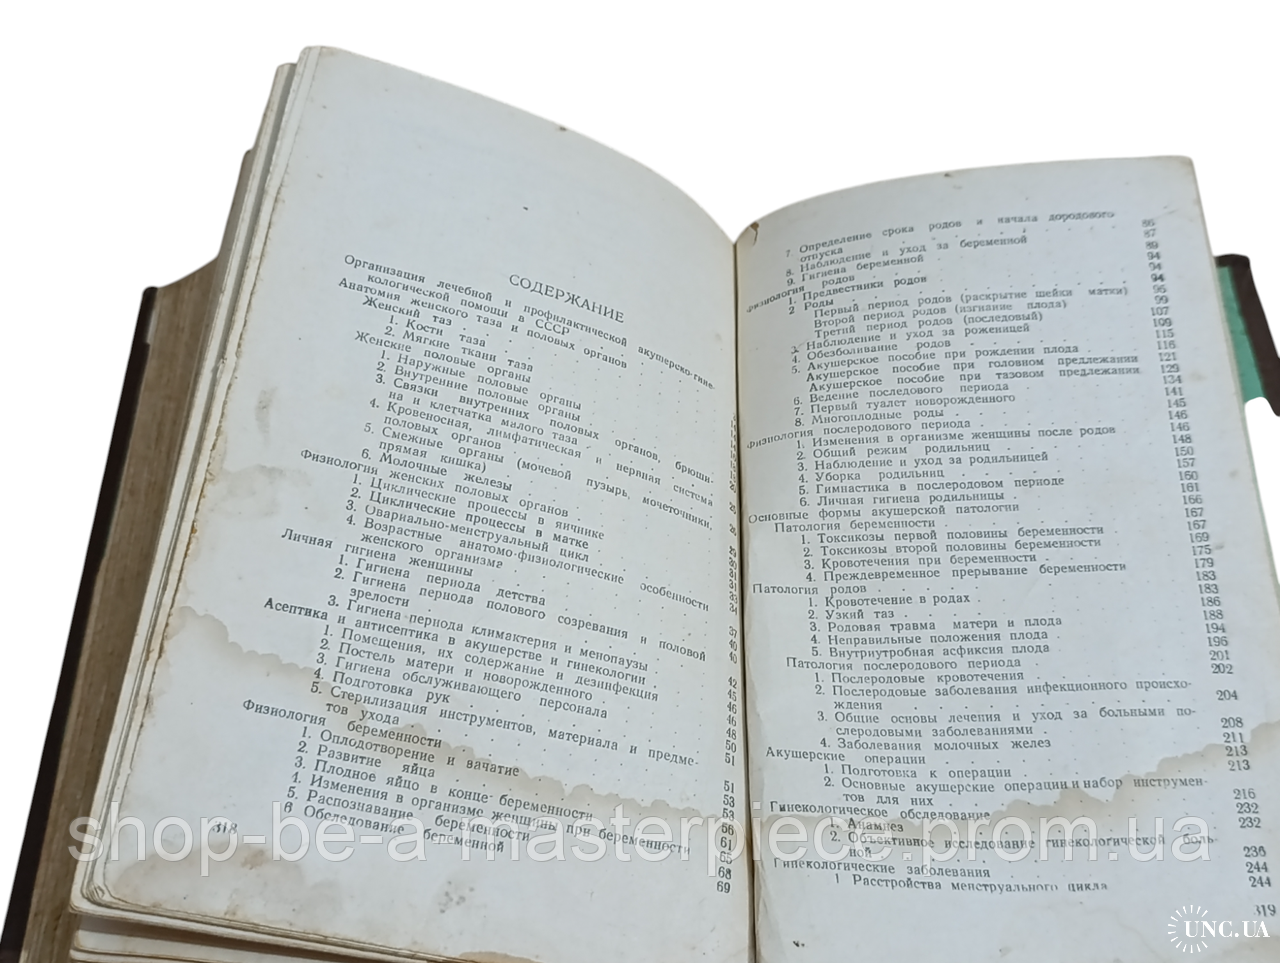 СОДЕРЖАНИЕ
Организация лечебной и профилактической акушерско-гине-
кологической помощи в СССР
Анатомия женского таза и половых органов
Женский таз
1. Кости таза
2. Мягкие ткани таза
Женские половые органы
1. Наружные половые органы
2. Внутренние половые органы
3. Связки внутренних половых органов, брюши-
на и клетчатка малого таза
4. Кровеносная, лимфатическая и нервная система
половых органов
5. Смежные органы (мочевой пузырь, мочеточники,
прямая кишка)
6. Молочные железы
Физиология женских половых органов
1. Циклические процессы в яичнике
2. Циклические процессы в матке
3. Овариально-менструальный цикл
4. Возрастные анатомо-физиологические особенности
женского организма
Личная гигиена женщины
1. Гигиена периода детства
2. Гигиена периода полового созревания и половой
зрелости
3. Гигиена периода климактерия и менопаузы
Асептика и антисептика в акушерстве и гинекологии
1. Помещения, их содержание и дезинфекция
2. Постель матери и новорожденного
3. Гигиена обслуживающего персонала
4. Подготовка рук
5. Стерилизация инструментов, материала и предме-
тов ухода
Физиология беременности
1. Оплодотворение и зачатие
2. Развитие яйца
3. Плодное яйцо в конце беременности
4. Изменения в организме женщины при беременности
5. Распознавание беременности
6 Обследование беременной 69
318
7 Определение срока родов и начала дородового
отпуска 86
8. Наблюдение и уход за беременной 87
9. Гигиена беременной 89
Физиология родов 94
1. Предвестники родов 94
2 Роды 94
Первый период родов (раскрытие шейки матки) 95
Второй период родов (изгнание плода) 99
Третий период родов (последовый) 107
3. Наблюдение и уход за роженицей 109
4. Обезболивание родов 115
5. Акушерское пособие при рождении плода 116
Акушерское пособие при головном предлежании 121
Акушерское пособие при тазовом предлежании 129
6. Ведение последового периода 134
7. Первый туалет новорожденного 141
8. Многоплодные роды 145
Физиология послеродового периода 146
1. Изменения в организме женщины после родов 146
2. Общий режим родильниц 148
3. Наблюдение и уход за родильницей 150
4. Уборка родильниц 157
5. Гимнастика в послеродовом периоде 160
6. Личная гигиена родильницы 161
Основные формы акушерской патологии 166
Патология беременности 167
1. Токсикозы первой половины беременности 167
2. Токсикозы второй половины беременности 169
3. Кровотечения при беременности 175
4. Преждевременное прерывание беременности 179
Патология родов 183
1. Кровотечение в родах 183
2. Узкий таз 186
3. Родовая травма матери и плода 188
4. Неправильные положения плода 194
5. Внутриутробная асфиксия плода 196
Патология послеродового периода 201
1. Послеродовые кровотечения 202
2. Послеродовые заболевания инфекционного происхо-
ждения 204
3. Общие основы лечения и уход за больными по-
слеродовыми заболеваниями 208
4. Заболевания молочных желез 211
Акушерские операции 213
1. Подготовка к операции 213
2. Основные акушерские операции и набор инструмен-
тов для них 216
Гинекологическое обследование 232
Анамнез 232
2. Объективное исследование гинекологической боль-
ной 236
Гинекологические заболевания 244
1 Расстройства менструального цикла 244
319
shop-be-a-masterpiece.prom.ua
UNC.UA